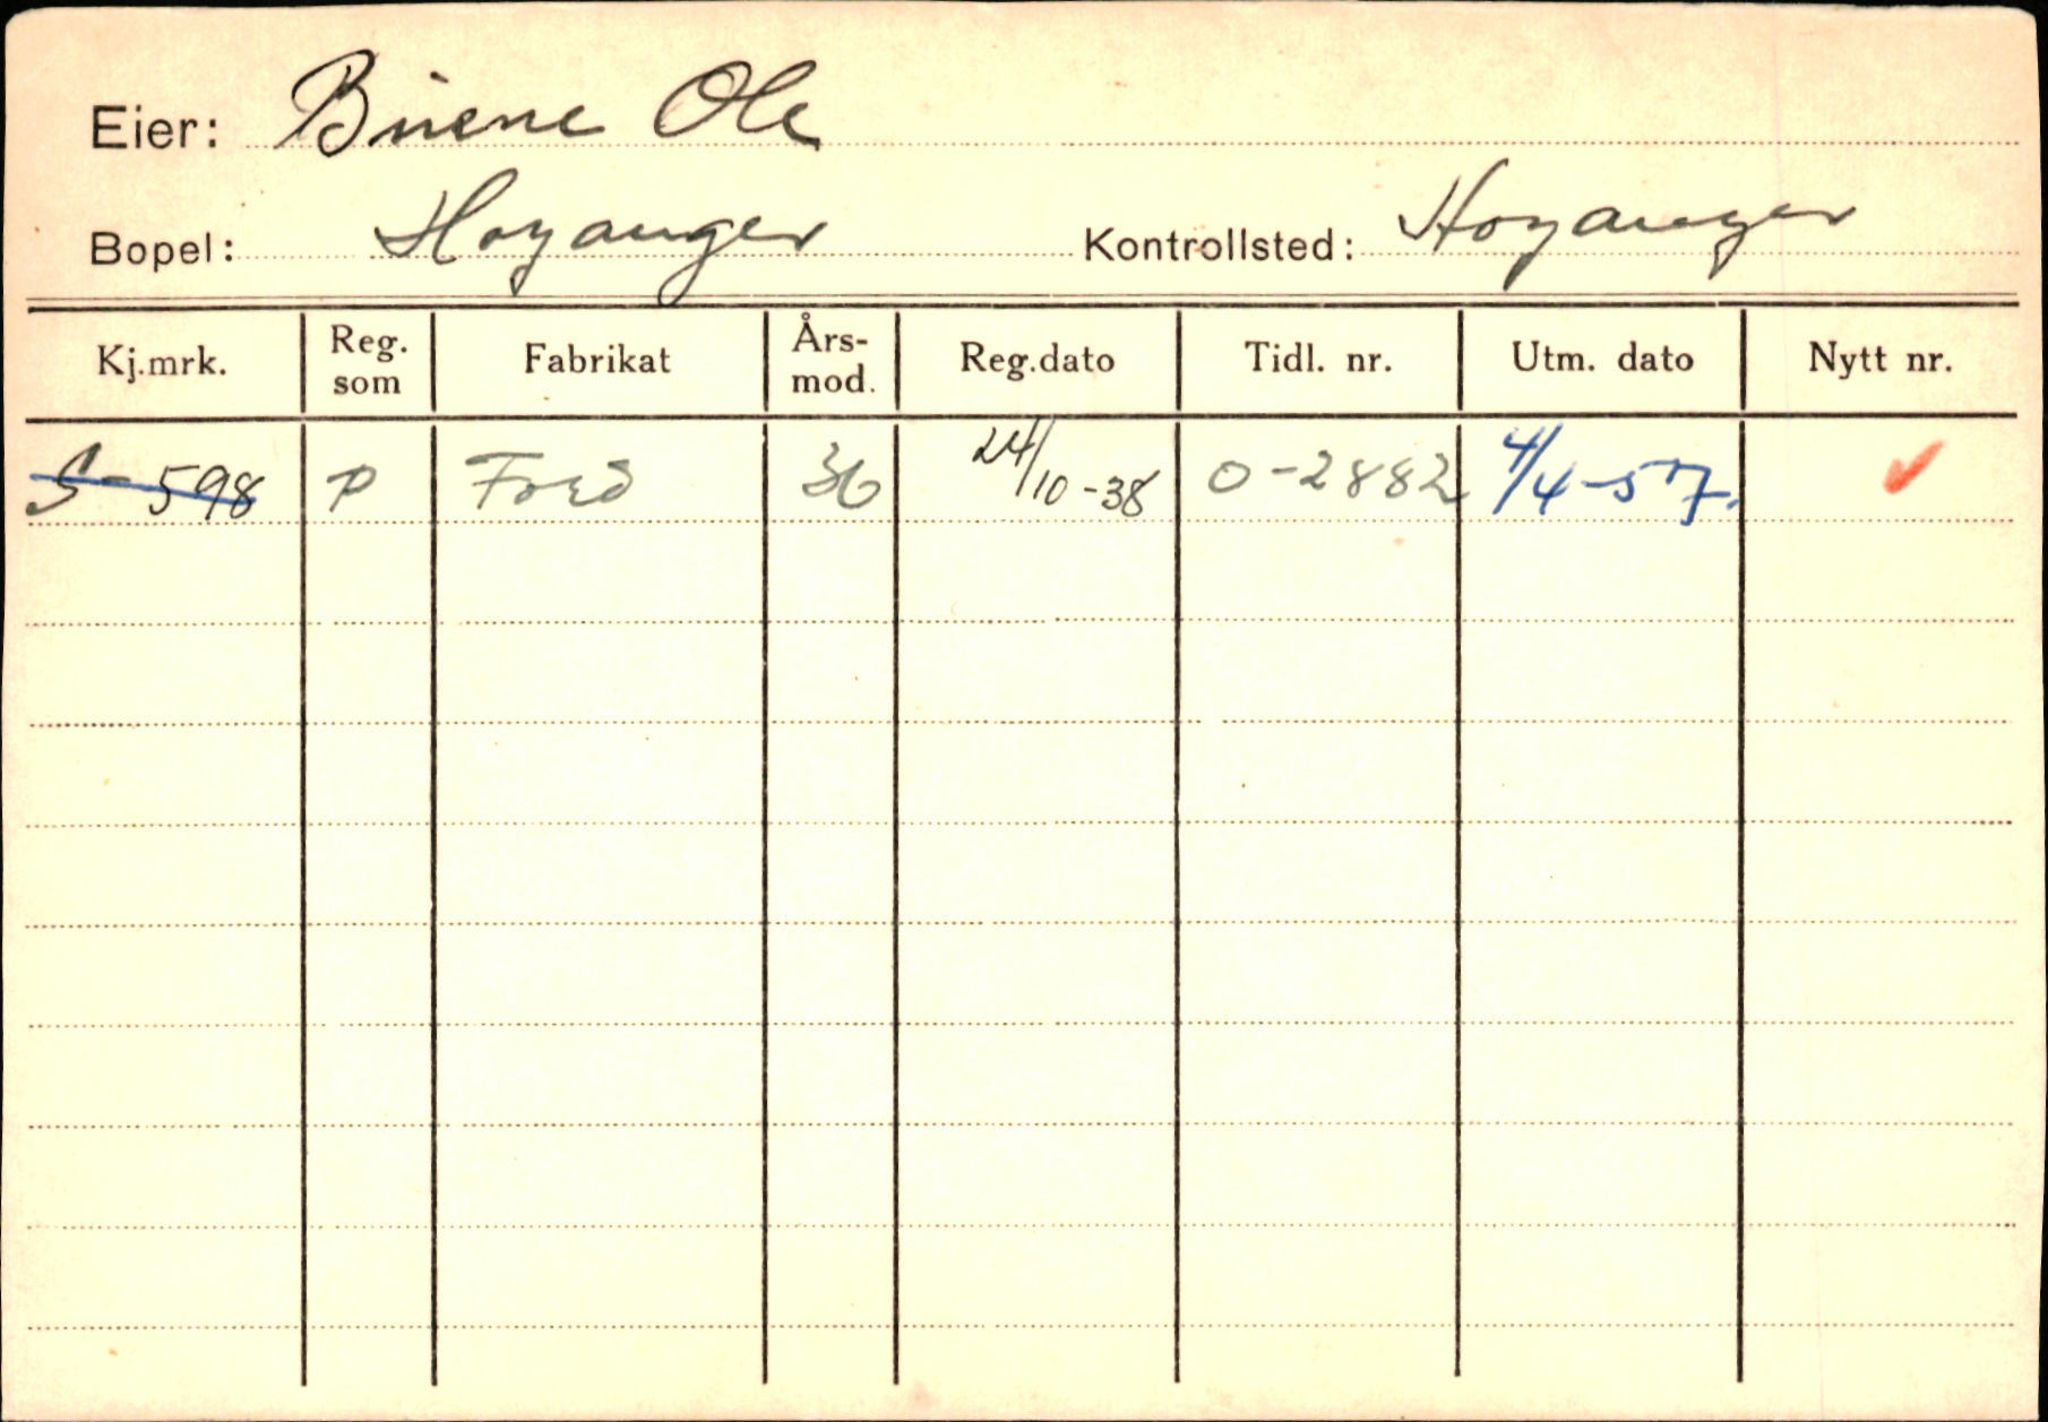 Eier: Buene Ole
Bopel: Hoyanger Kontrollsted: Hoyanger
Kj.mrk. Reg. som Fabrikat Års-mod. Reg.dato Tidl. nr. Utm. dato Nytt nr.
S-598 P Ford 36 24/10-38 O-2882 4/4-57. ✓